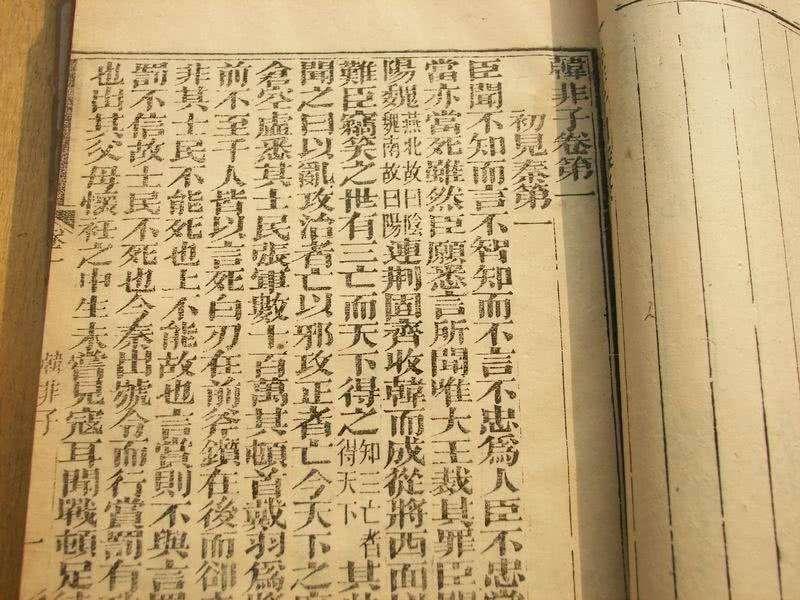 韓非子卷第一
初見秦第一
臣聞不知而言不智知而不言不忠爲人臣不忠當
當亦當死雖然臣願悉言所聞唯大王裁其罪臣聞
陽魏
燕北故曰陰
魏南故曰陽
連荆固齊收韓而成從將西面
難臣竊笑之世有三亡而天下得之
知三亡者
得天下
其此
聞之曰以亂攻治者亡以邪攻正者亡今天下之府
倉空虛悉其士民張軍數十百萬其頓首戴羽爲將
前不至千人皆以言死白刃在前斧鑕在後而卻走
非其士民不能死也上不能故也言賞則不與言罰
罰不信故士民不死也今秦出號令而行賞罰有
也出其父母懷衽之中生未嘗見寇耳聞戰頓足徒
卷一
韓非子
一